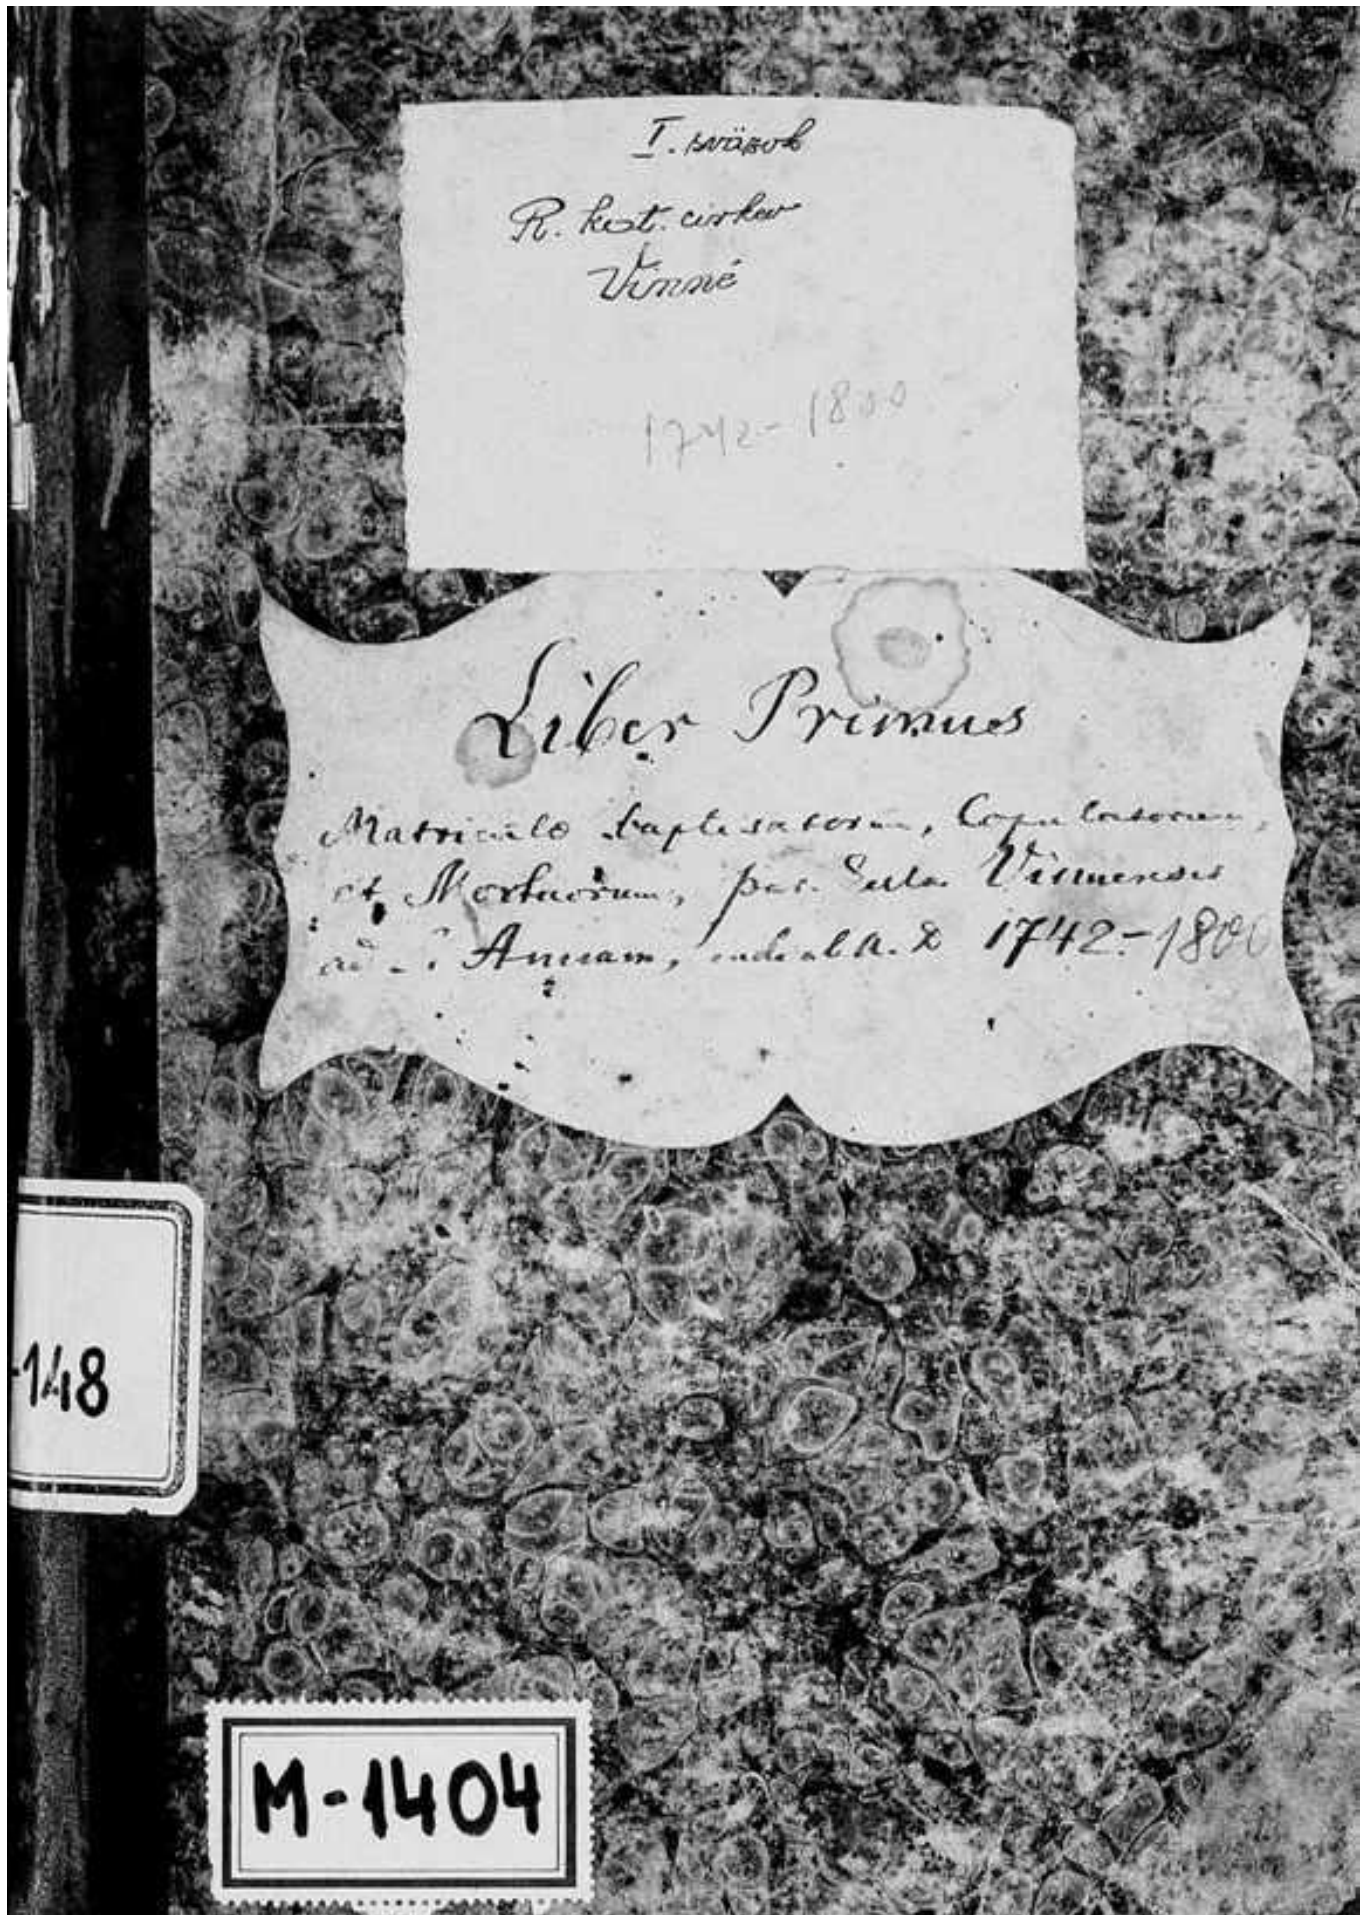 I. sväzok
R. kat. cirkev
Vinné
1742-1800
Liber Primus
Matricula baptisatorum, Copulatorum,
et Mortuorum, par. Eccla Vinnensis
ad S. Annam, inde ab A. D 1742.-1800
-148
M-1404